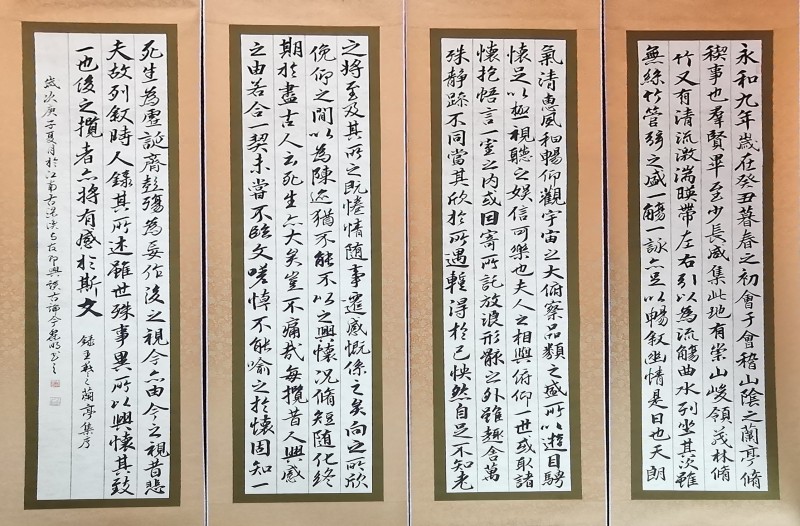 永和九年歲在癸丑暮春之初會于會稽山陰之蘭亭脩
稧事也羣賢畢至少長咸集此地有崇山峻領茂林脩
竹又有清流激湍暎帶左右引以為流觴曲水列坐其次雖
無絲竹管弦之盛一觴一詠亦足以暢叙幽情是日也天朗
氣清惠風和暢仰觀宇宙之大俯察品類之盛所以遊目騁
懷足以極視聽之娛信可樂也夫人之相與俯仰一世或取諸
懷抱悟言一室之内或因寄所託放浪形骸之外雖趣舍萬
殊靜躁不同當其欣於所遇輕得於己怏然自足不知老
之將至及其所之既惓情隨事遷感慨係之矣向之所欣
俛仰之間以為陳迹猶不能不以之興懷況脩短隨化終
期於盡古人云死生亦大矣豈不痛哉每攬昔人興感
之由若合一契未嘗不臨文嗟悼不能喻之於懷固知一
死生為虛誕齊彭殤為妄作後之視今亦由今之視昔悲
夫故列叙時人錄其所述雖世殊事異所以興懷其致
一也後之攬者亦將有感於斯文 錄王羲之蘭亭集序
歲次庚子夏月於江南古梁溪与友即興談古論今